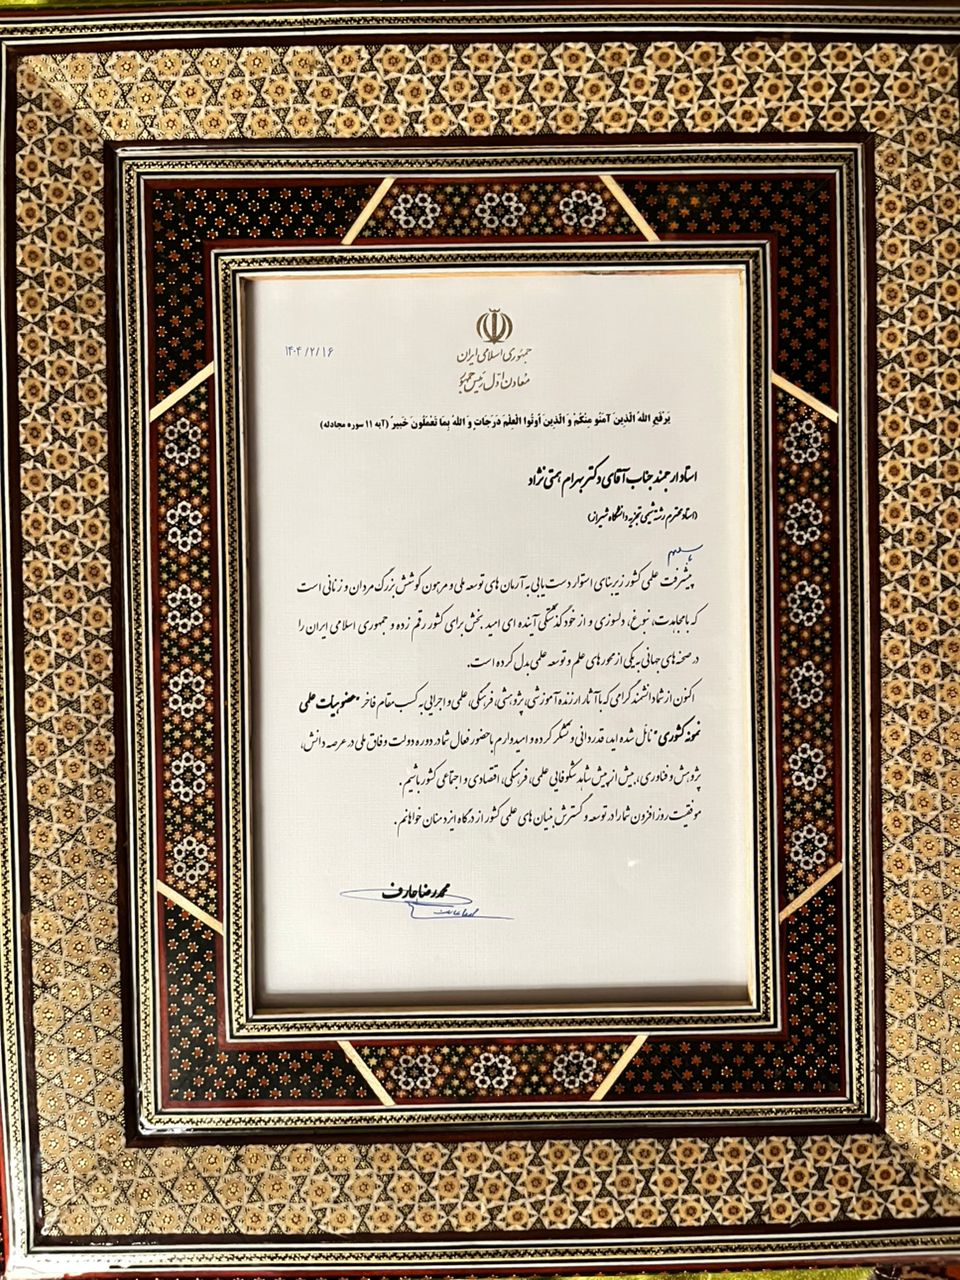 جمهوری اسلامی ایران
معاون اول رئیس جمهور
۱۴۰۴/۲/۱۶
یَرْفَعِ اللهُ الَّذینَ آمَنُو مِنْکُمْ وَ الَّذینَ أوتُوا الْعِلْمَ دَرَجاتٍ وَ اللهُ بِما تَعْمَلُونَ خَبیرٌ (آیه ۱۱ سوره مجادله)
استاد ارجمند جناب آقای دکتر بهرام همتی نژاد
(استاد محترم رشته شیمی تجزیه دانشگاه شیراز)
با سلام
پیشرفت علمی کشور زیربنای استوار دست یابی به آرمان های توسعه ملی و مرهون کوشش بزرگ مردان و زنانی است
که با مجاهدت، نبوغ، دلسوزی و از خودگذشتگی آینده ای امید بخش برای کشور رقم زده و جمهوری اسلامی ایران را
در صحنه های جهانی به یکی از محورهای علم و توسعه علمی بدل کرده است.
اکنون از شما دانشمند گرامی که با آثار ارزنده آموزشی، پژوهشی، فرهنگی، علمی و اجرایی به کسب مقام فاخر "عضو هیات علمی
نمونه کشوری" نائل شده اید، قدردانی و تشکر کرده و امیدوارم با حضور فعال شما در دوره دولت وفاق ملی در عرصه دانش،
پژوهش و فناوری، بیش از پیش شاهد شکوفایی علمی، فرهنگی، اقتصادی و اجتماعی کشور باشیم.
موفقیت روز افزون شما را در توسعه و گسترش بنیان های علمی کشور از درگاه ایزد منان خواهانم.
محمدرضا عارف